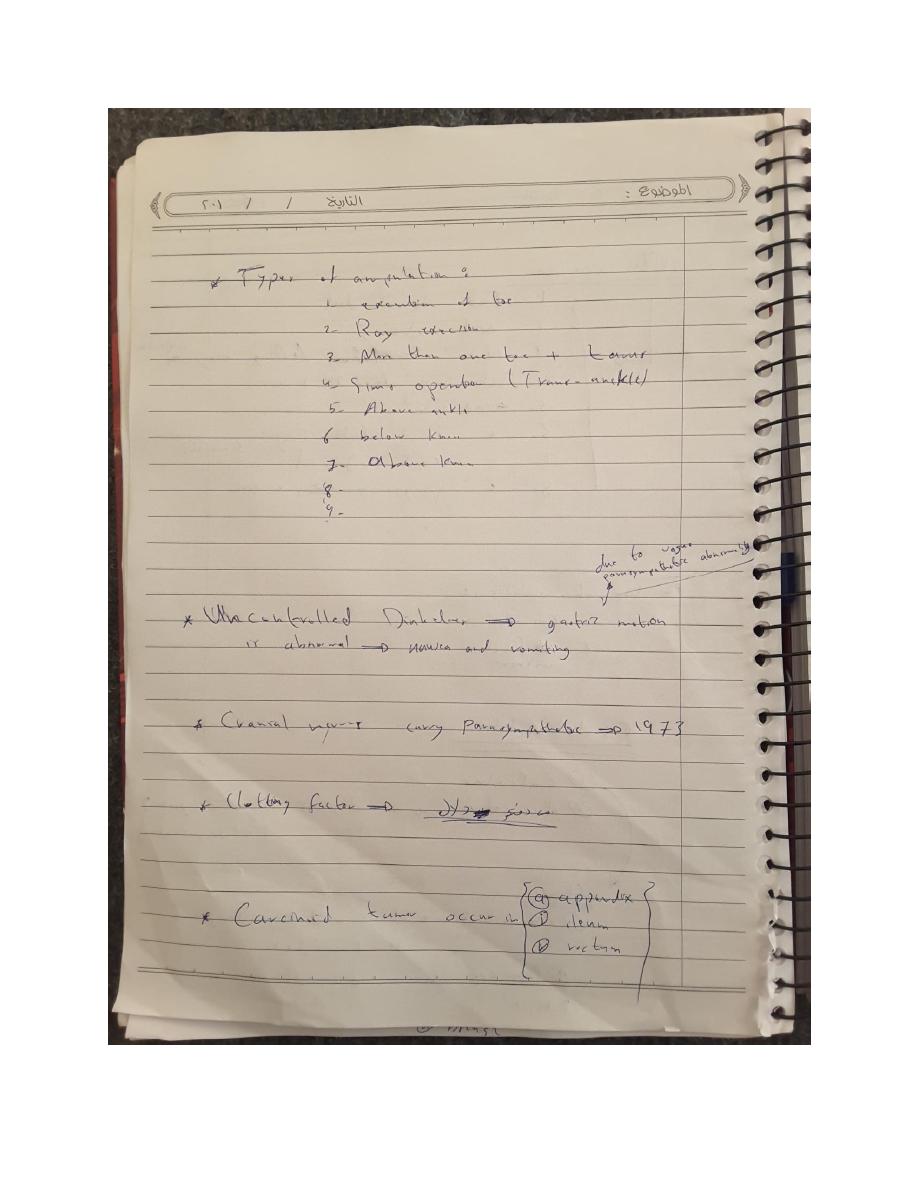 الموضوع :
التاريخ / / ٢٠١
* Types of amputation :
1. excution of toe
2- Ray excision
3- More than one toe + tarus
4- Sims operation (Trans-ankle)
5- Above ankle
6 below knee
7- Above knee
8-
9-
due to vagus
parasympathetic abnormality
* Uncontrolled Diabetes ⇒ gastric motion
is abnormal ⇒ nausea and vomiting
* Cranial nerves carry parasympathetic ⇒ 1973
* Clotting factor ⇒
* Carcinoid tumor occur in
① appendix
② ileum
③ rectum